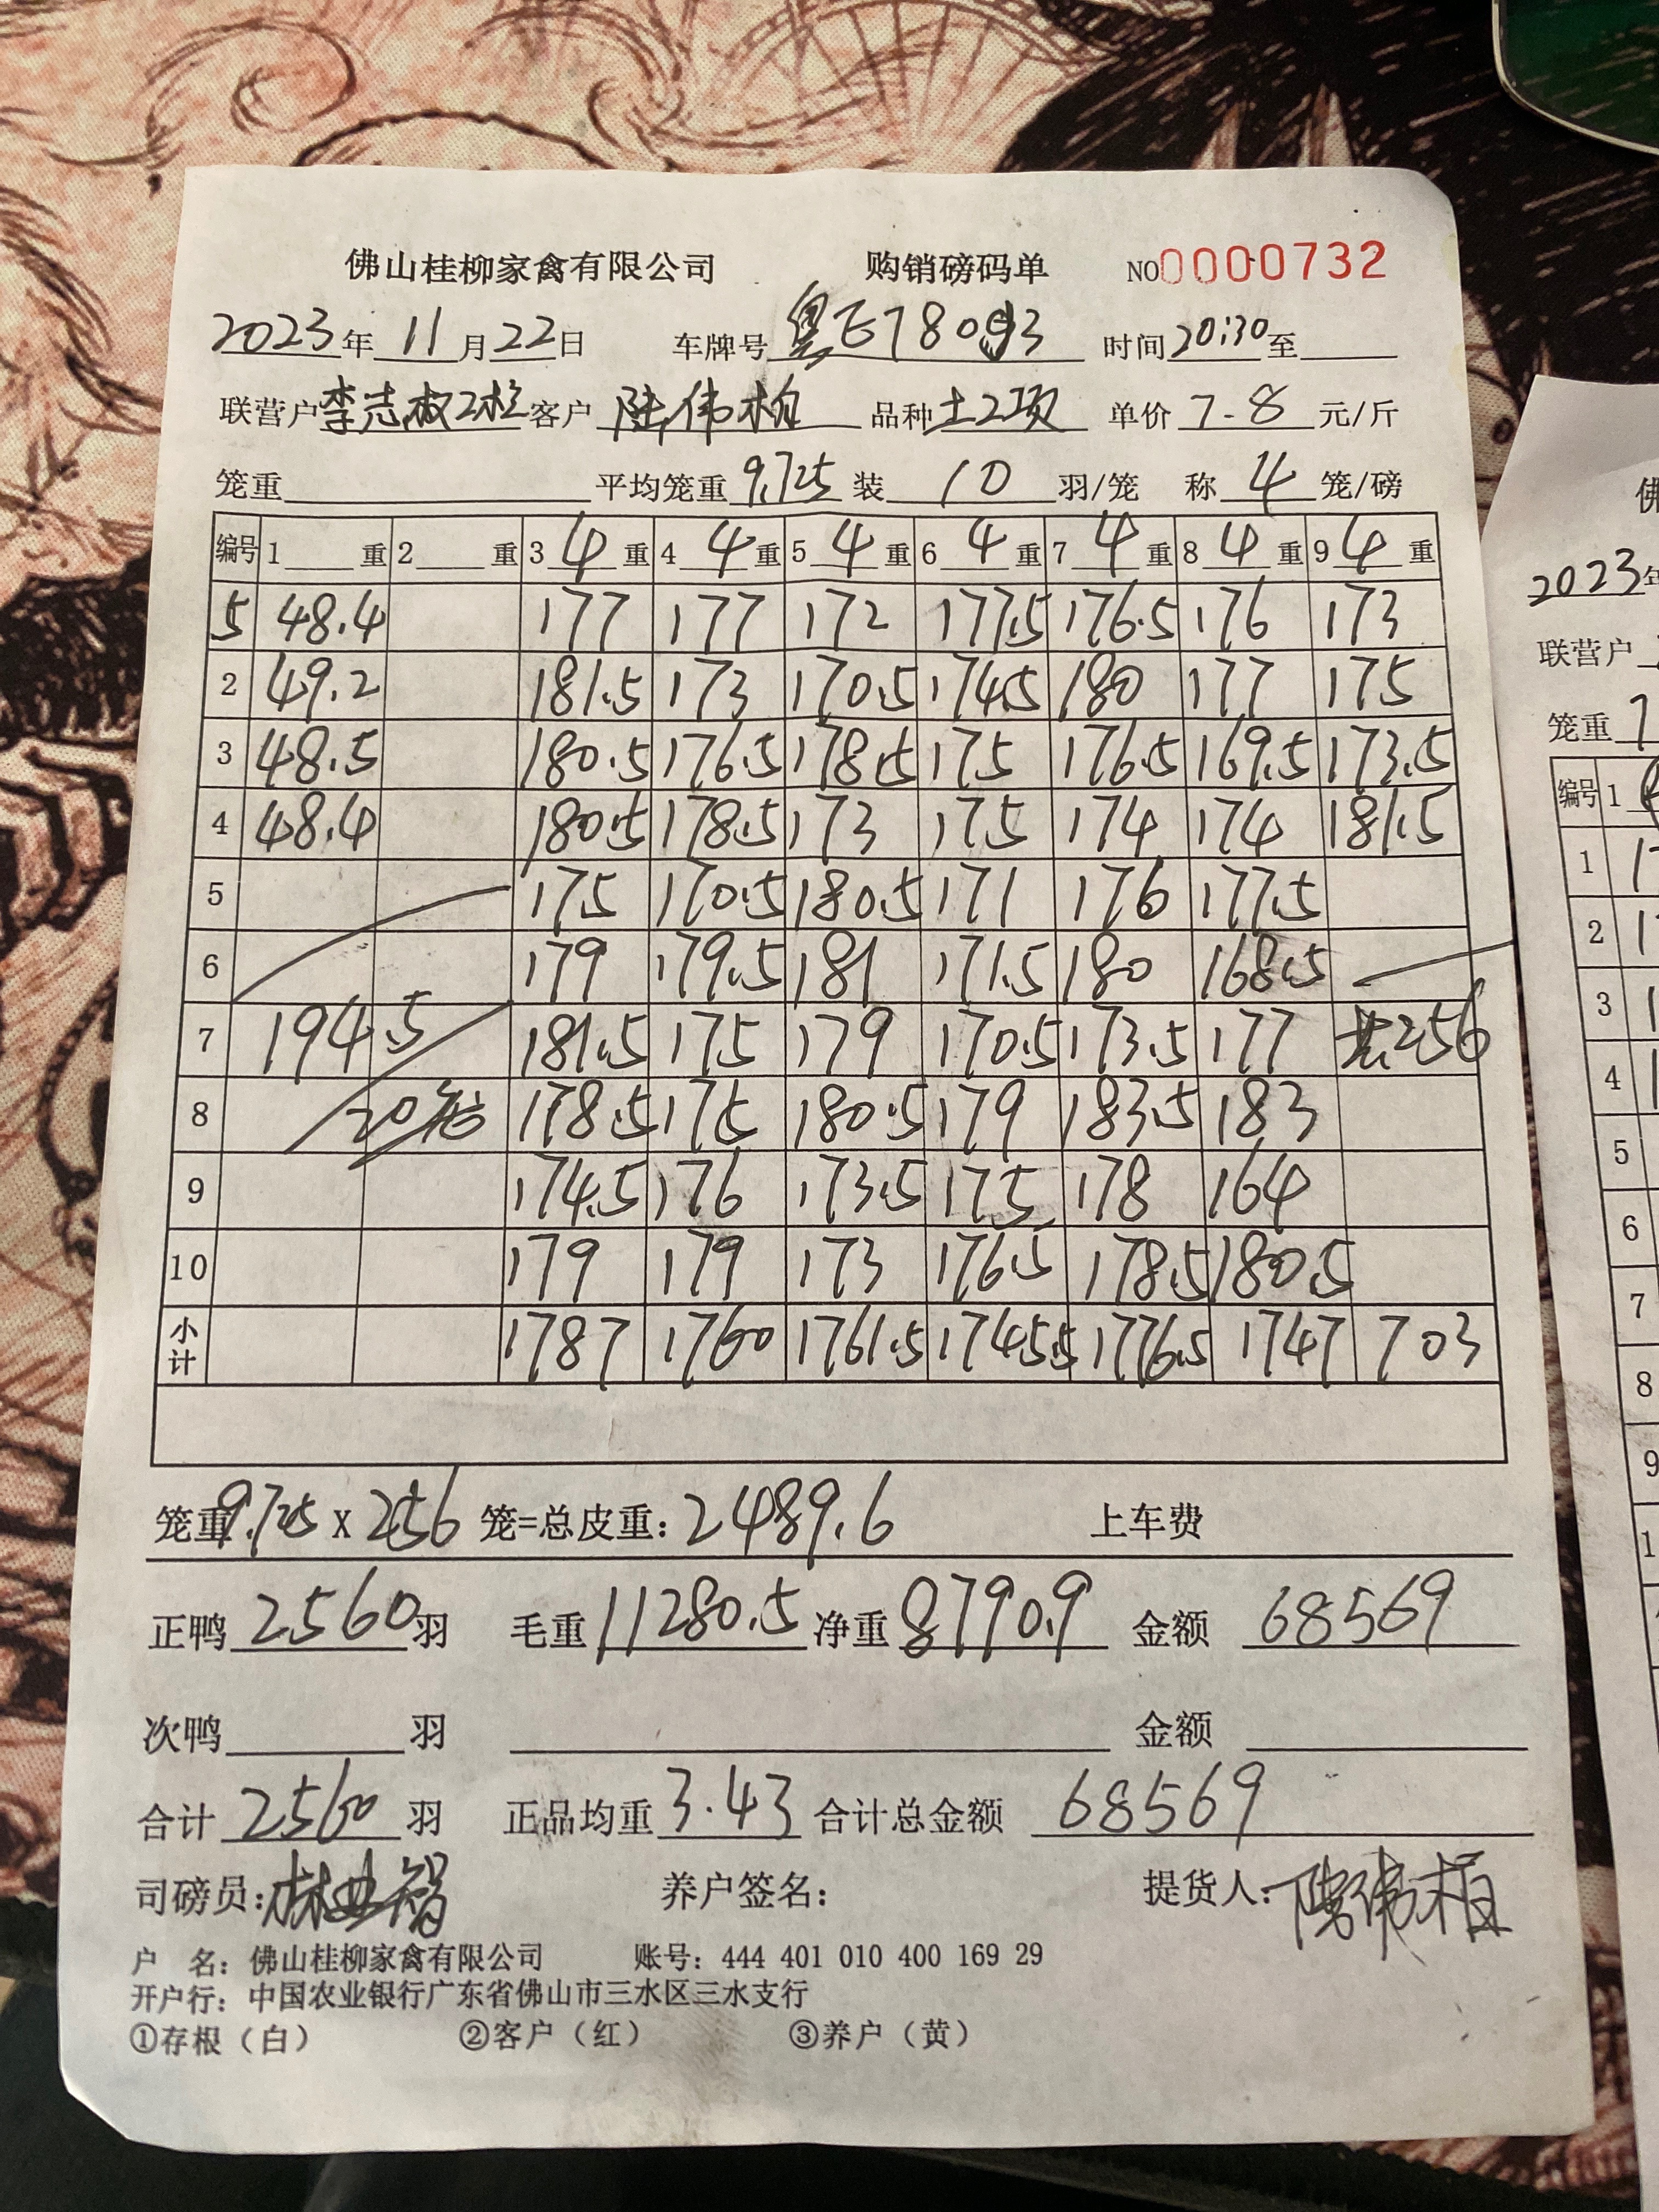 佛山桂柳家禽有限公司 购销磅码单 NO0000732
2023年11月22日 车牌号粤E78093 时间20:30至
联营户李志权2栏客户陆伟柏 品种土2项 单价7-8元/斤
笼重 平均笼重9.725装10羽/笼 称4笼/磅
编号 1 重 2 重 3 4 重 4 4 重 5 4 重 6 4 重 7 4 重 8 4 重 9 4 重
5 48.4 177 177 172 177.5 176.5 176 173
2 49.2 181.5 173 170.5 174.5 180 177 175
3 48.5 180.5 176.5 178.5 175 176.5 169.5 173.5
4 48.4 180.5 178.5 173 175 174 174 181.5
5 175 170.5 180.5 171 176 177.5
6 179 179.5 181 171.5 180 168.5
7 194.5 181.5 175 179 170.5 173.5 177 共256
8 20笼 178.5 175 180.5 179 183.5 183
9 174.5 176 173.5 175 178 164
10 179 179 173 176.5 178.5 180.5
小计 1787 1760 1761.5 1745.5 1776.5 1747 703
笼重9.725 X 256 笼=总皮重：2489.6 上车费
正鸭2560羽 毛重11280.5净重8790.9 金额 68569
次鸭 羽 金额
合计2560羽 正品均重3.43合计总金额 68569
司磅员： 养户签名： 提货人：陆伟柏
户 名：佛山桂柳家禽有限公司 账号：444 401 010 400 169 29
开户行：中国农业银行广东省佛山市三水区三水支行
①存根（白） ②客户（红） ③养户（黄）
佛
2023年
联营户
笼重7
编号 1
1
2
3
4
5
6
7
8
9